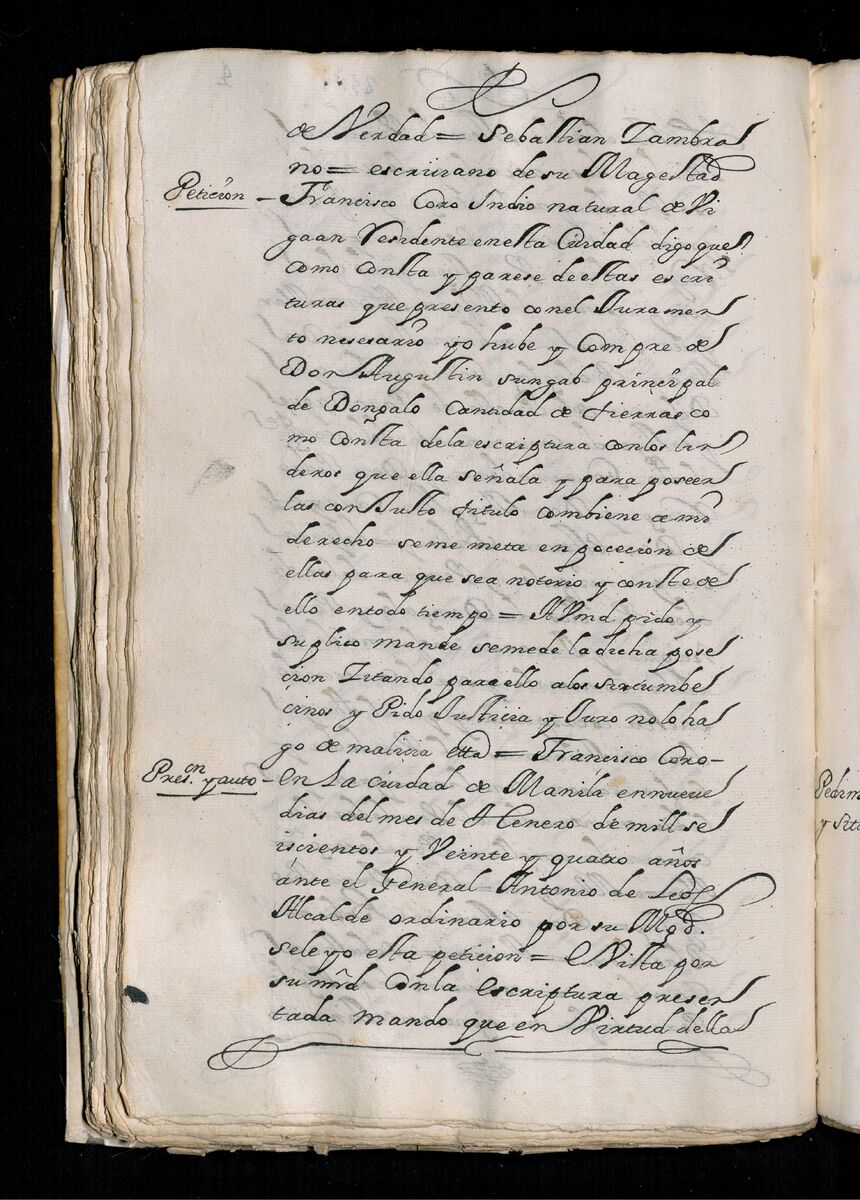 de Verdad = Sebastian Zambra
no = escriuano de su Magestad
Peticion - Francisco Coro Indio natural de Vi
gaan Residente enesta Ciudad digo que
como Consta y parese deestas escri
turas que presento conel Juramen
to nesesario yo hube y Compre de
Don Augustin sungab prinçipal
de Dongalo Cantidad de tierras co
mo Consta dela escriptura conlos lin
deros que ella señala y para poseer
las con Justo titulo combiene a mi
derecho seme meta en poceçion de
ellas para que sea notorio y conste de
ello entodo tiempo = A Vmd pido y
suplico mande semede la dicha pose
çion Zitando para ello alos sircumbe
çinos y Pido Justiçia y Juro nolo ha
go de maliçia ettª = Francisco Coro -
Pres.cn y auto - en La çiudad de Manila ennueue
dias del mes de Henero de mill se
iscientos y Veinte y quatro años
ante el General Antonio de
Alcalde ordinario por su Mgd.
seleyo esta petiçion = e Vista por
su mrd Conla escriptura presen
tada mando que en Virtud della
Pedim
y sita